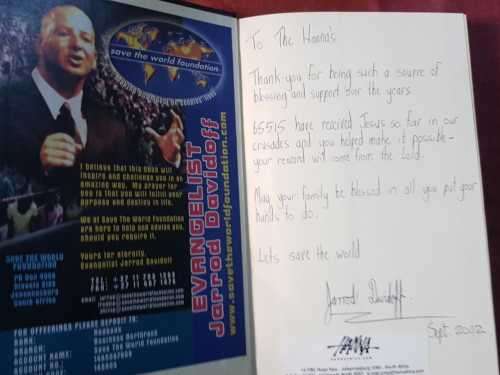 save the world foundation
EVANGELIST
Jarrod Davidoff
www.savetheworldfoundation.com
I believe that this book will
inspire and challenge you in an
amazing way. My prayer for
you is that you will fulfil your
purpose and destiny in life.
We at Save The World Foundation
are here to help and advise you,
should you require it.
Yours for eternity,
Evangelist Jarrod Davidoff
SAVE THE WORLD
FOUNDATION
South Africa
TEL
FAX
EMAIL
FOR OFFERINGS PLEASE DEPOSIT TO:
BANK:
BRANCH:
ACCOUNT NAME:
Save The World Foundation
ACCOUNT NO.:
To The Hanna's
Thank you for being such a source of
blessing and support over the years.
65515 have received Jesus so far in our
crusades and you helped make it possible -
your reward will come from the Lord
May your family be blessed in all you put your
hands to do.
Lets save the world
Jarrod Davidoff
Sept 2002